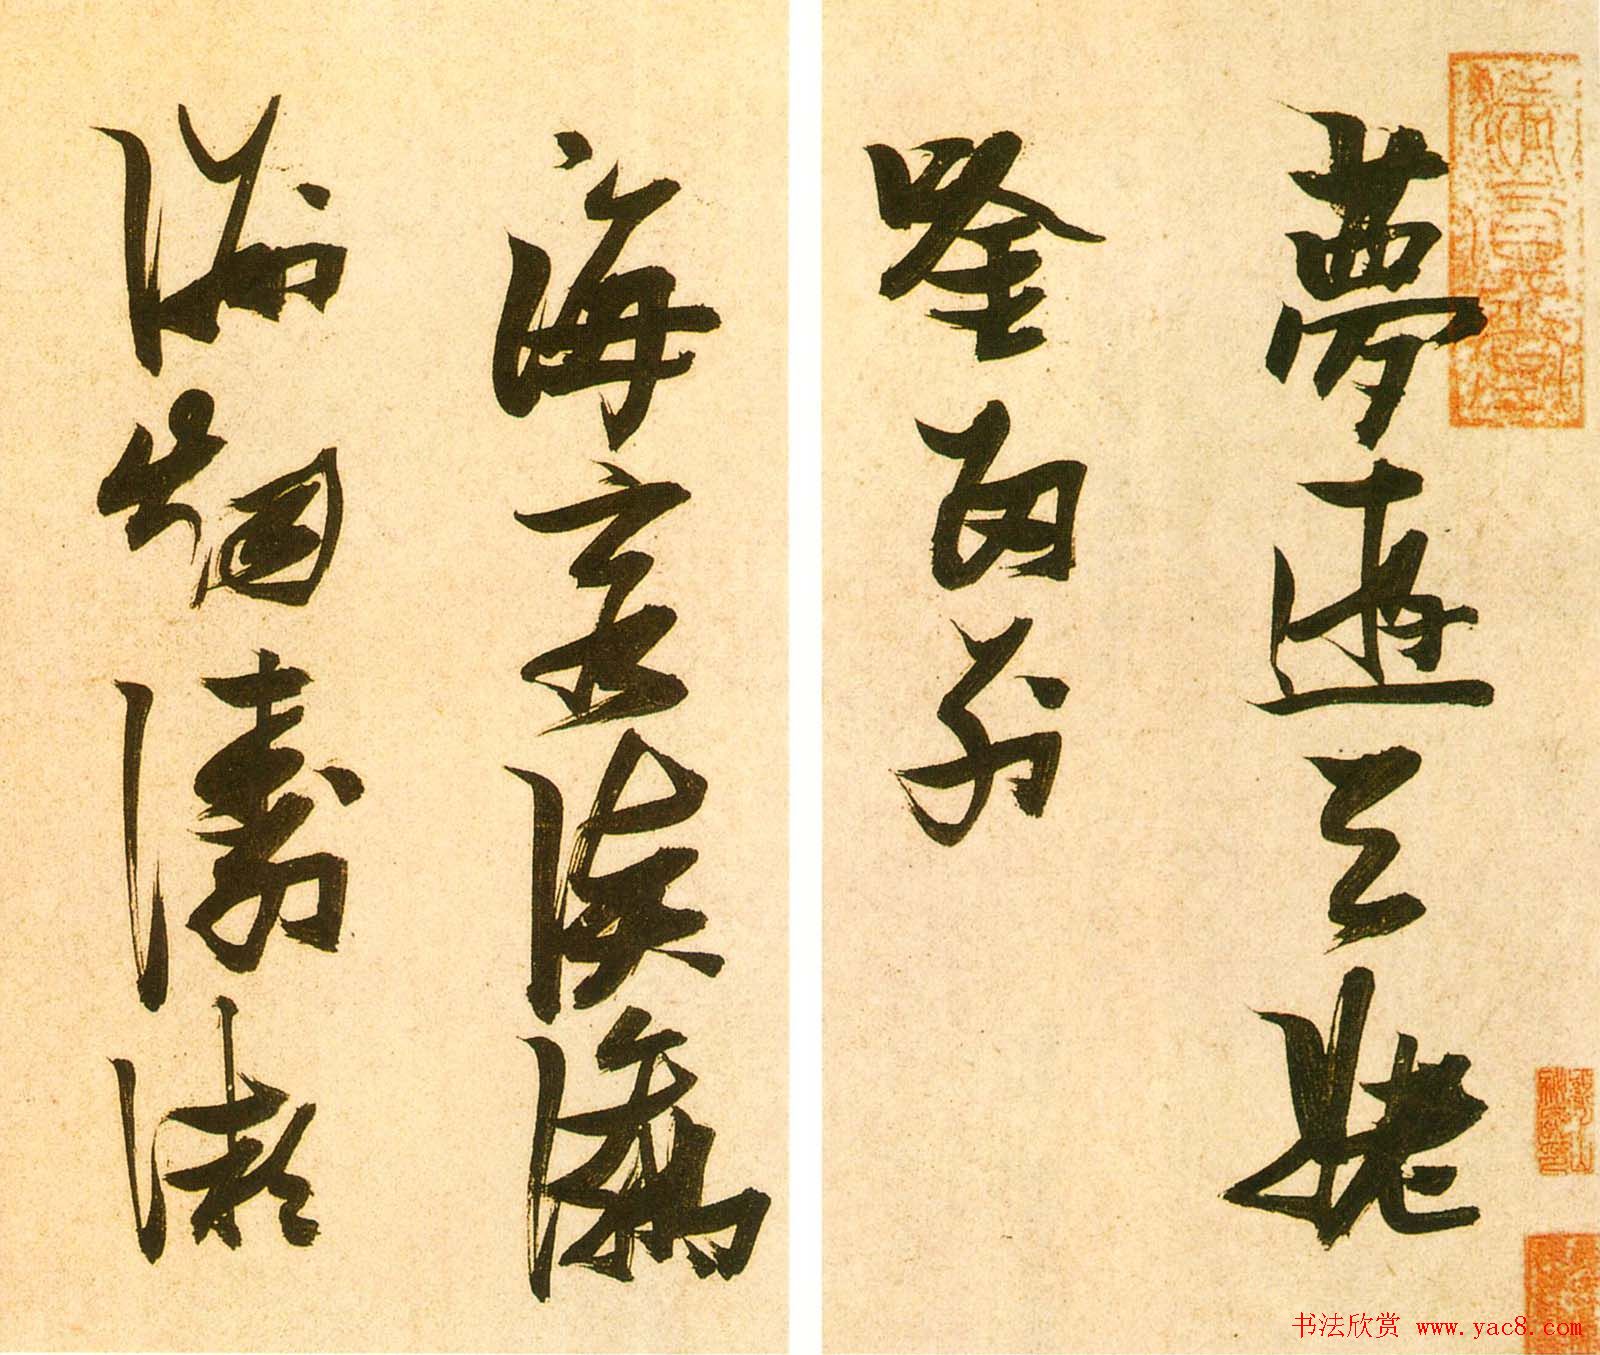 夢遊天姥
唫留別
海客談瀛
洲烟濤微
书法欣赏 www.yac8.com